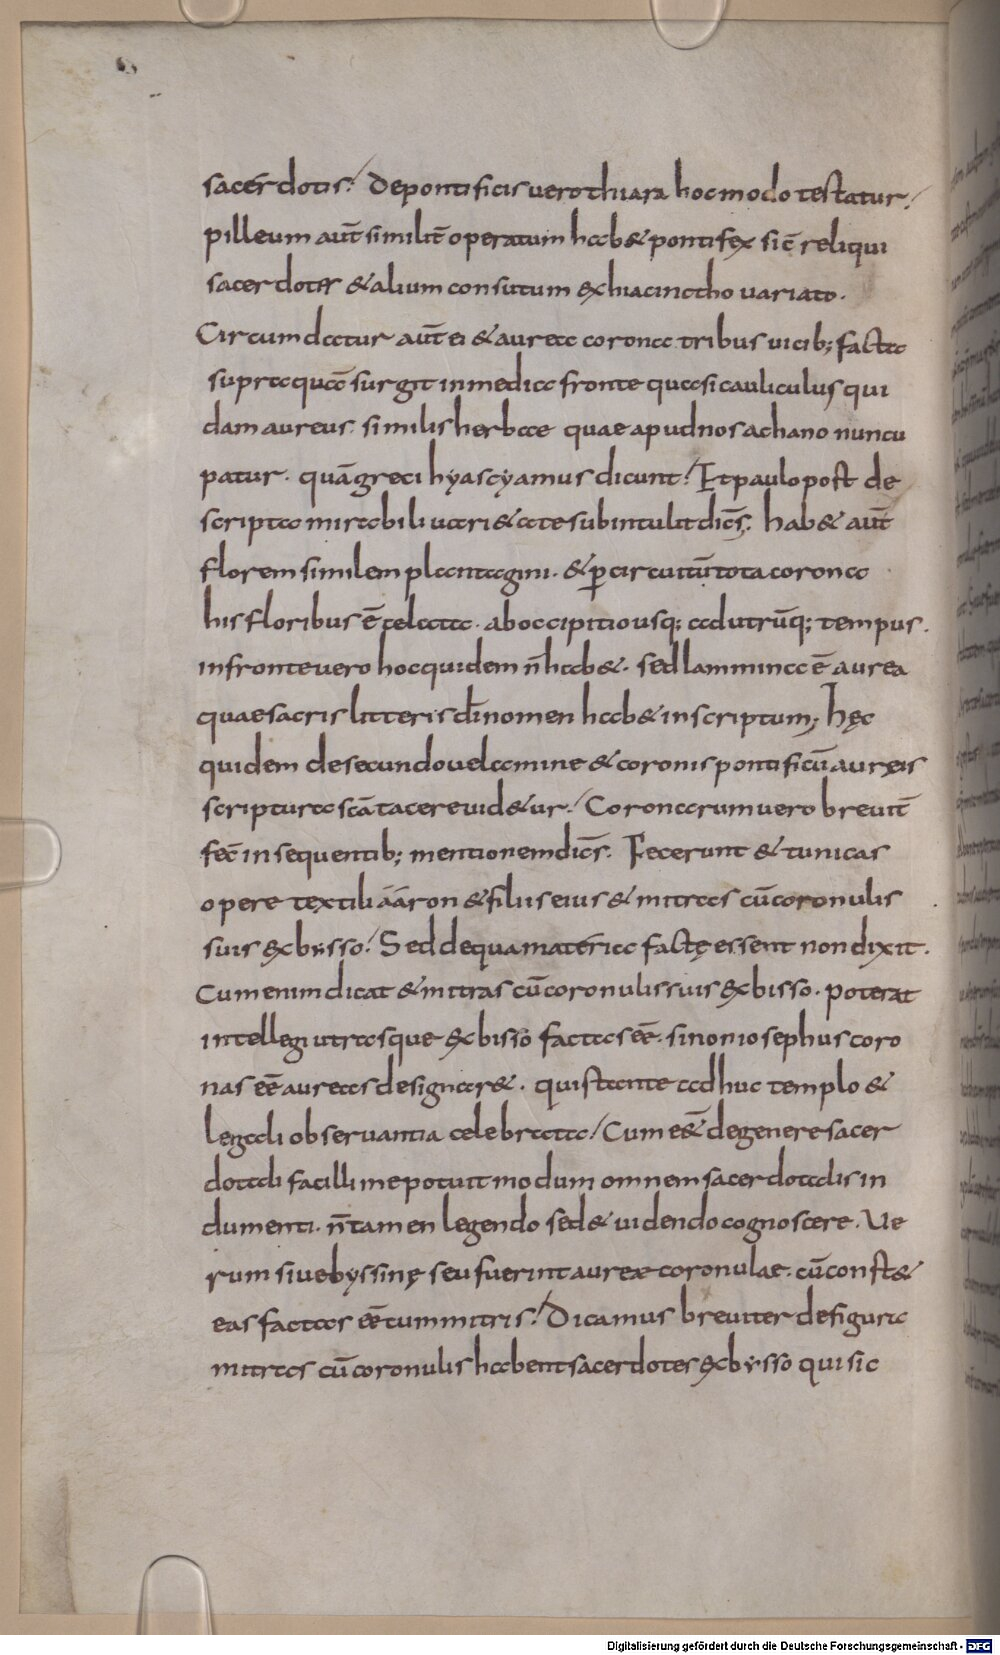 sacerdotis. De pontificis vero thiara hoc modo testatur.
pilleum aut̄ similit̄ operatum hab& pontifex sic̄ reliqui
sacerdotes & alium consutum ex hiacinctho variato.
Circumdatur aut̄ ei & aurea corona tribus vicib; facta
supra quā surgit in media fronte quasi cauliculus qui
dam aureus. similis herbae quae apud nos achano nuncu
patur. quā greci hyascyamus dicunt. Et paulo post de
scripta mirabili vari&ate subintulit dic̄s. Hab& aut̄
florem similem plantagini. & p̲ circuitū tota corona
his floribus ē celata. ab occipitio usq; ad utrūq; tempus.
in fronte vero hoc quidem n̄ hab&. sed lammina ē aurea
quae sacris litteris dī nomen hab& inscriptum; Hęc
quidem de secundo velamine & coronis pontificū aureis
scriptura scā tacere vid&ur. Coronarum vero brevit̄
fec̄ in sequentib; mentionem dic̄s. Fecerunt & tunicas
opere textili áaron & filiis eius & mitras cū coronulis
suis ex bysso. Sed de qua materia factę essent non dixit.
Cum enim dicat & mitras cū coronulis suis ex bisso. poterat
intellegi utrasque ex bisso factas eē. si non iosephus coro
nas eē aureas designar&. qui stante adhuc templo &
legali observantia celebrata. Cum e&̄ de genere sacer
dotali facillime potuit modum omnem sacerdotalis in
dumenti. n̄ tamen legendo sed & videndo cognoscere. Ve
rum sive byssinę seu fuerint aureae coronulae. cū const&
eas factas eē cum mitris. Dicamus breviter de figura
mitras cū coronulis habent sacerdotes ex bysso qui sic
Digitalisierung gefördert durch die Deutsche Forschungsgemeinschaft - DFG